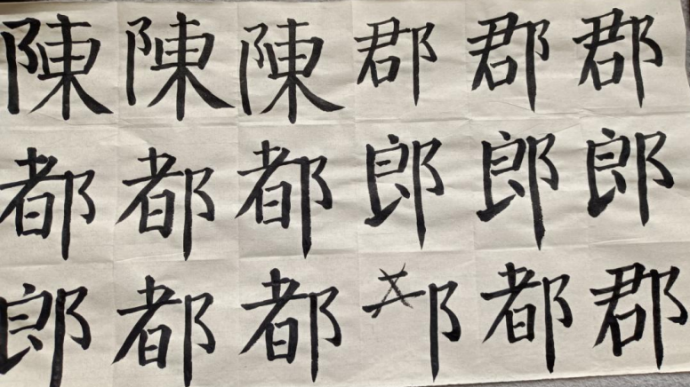 陳陳陳郡郡郡
都都都郎郎郎
郎都都都郡